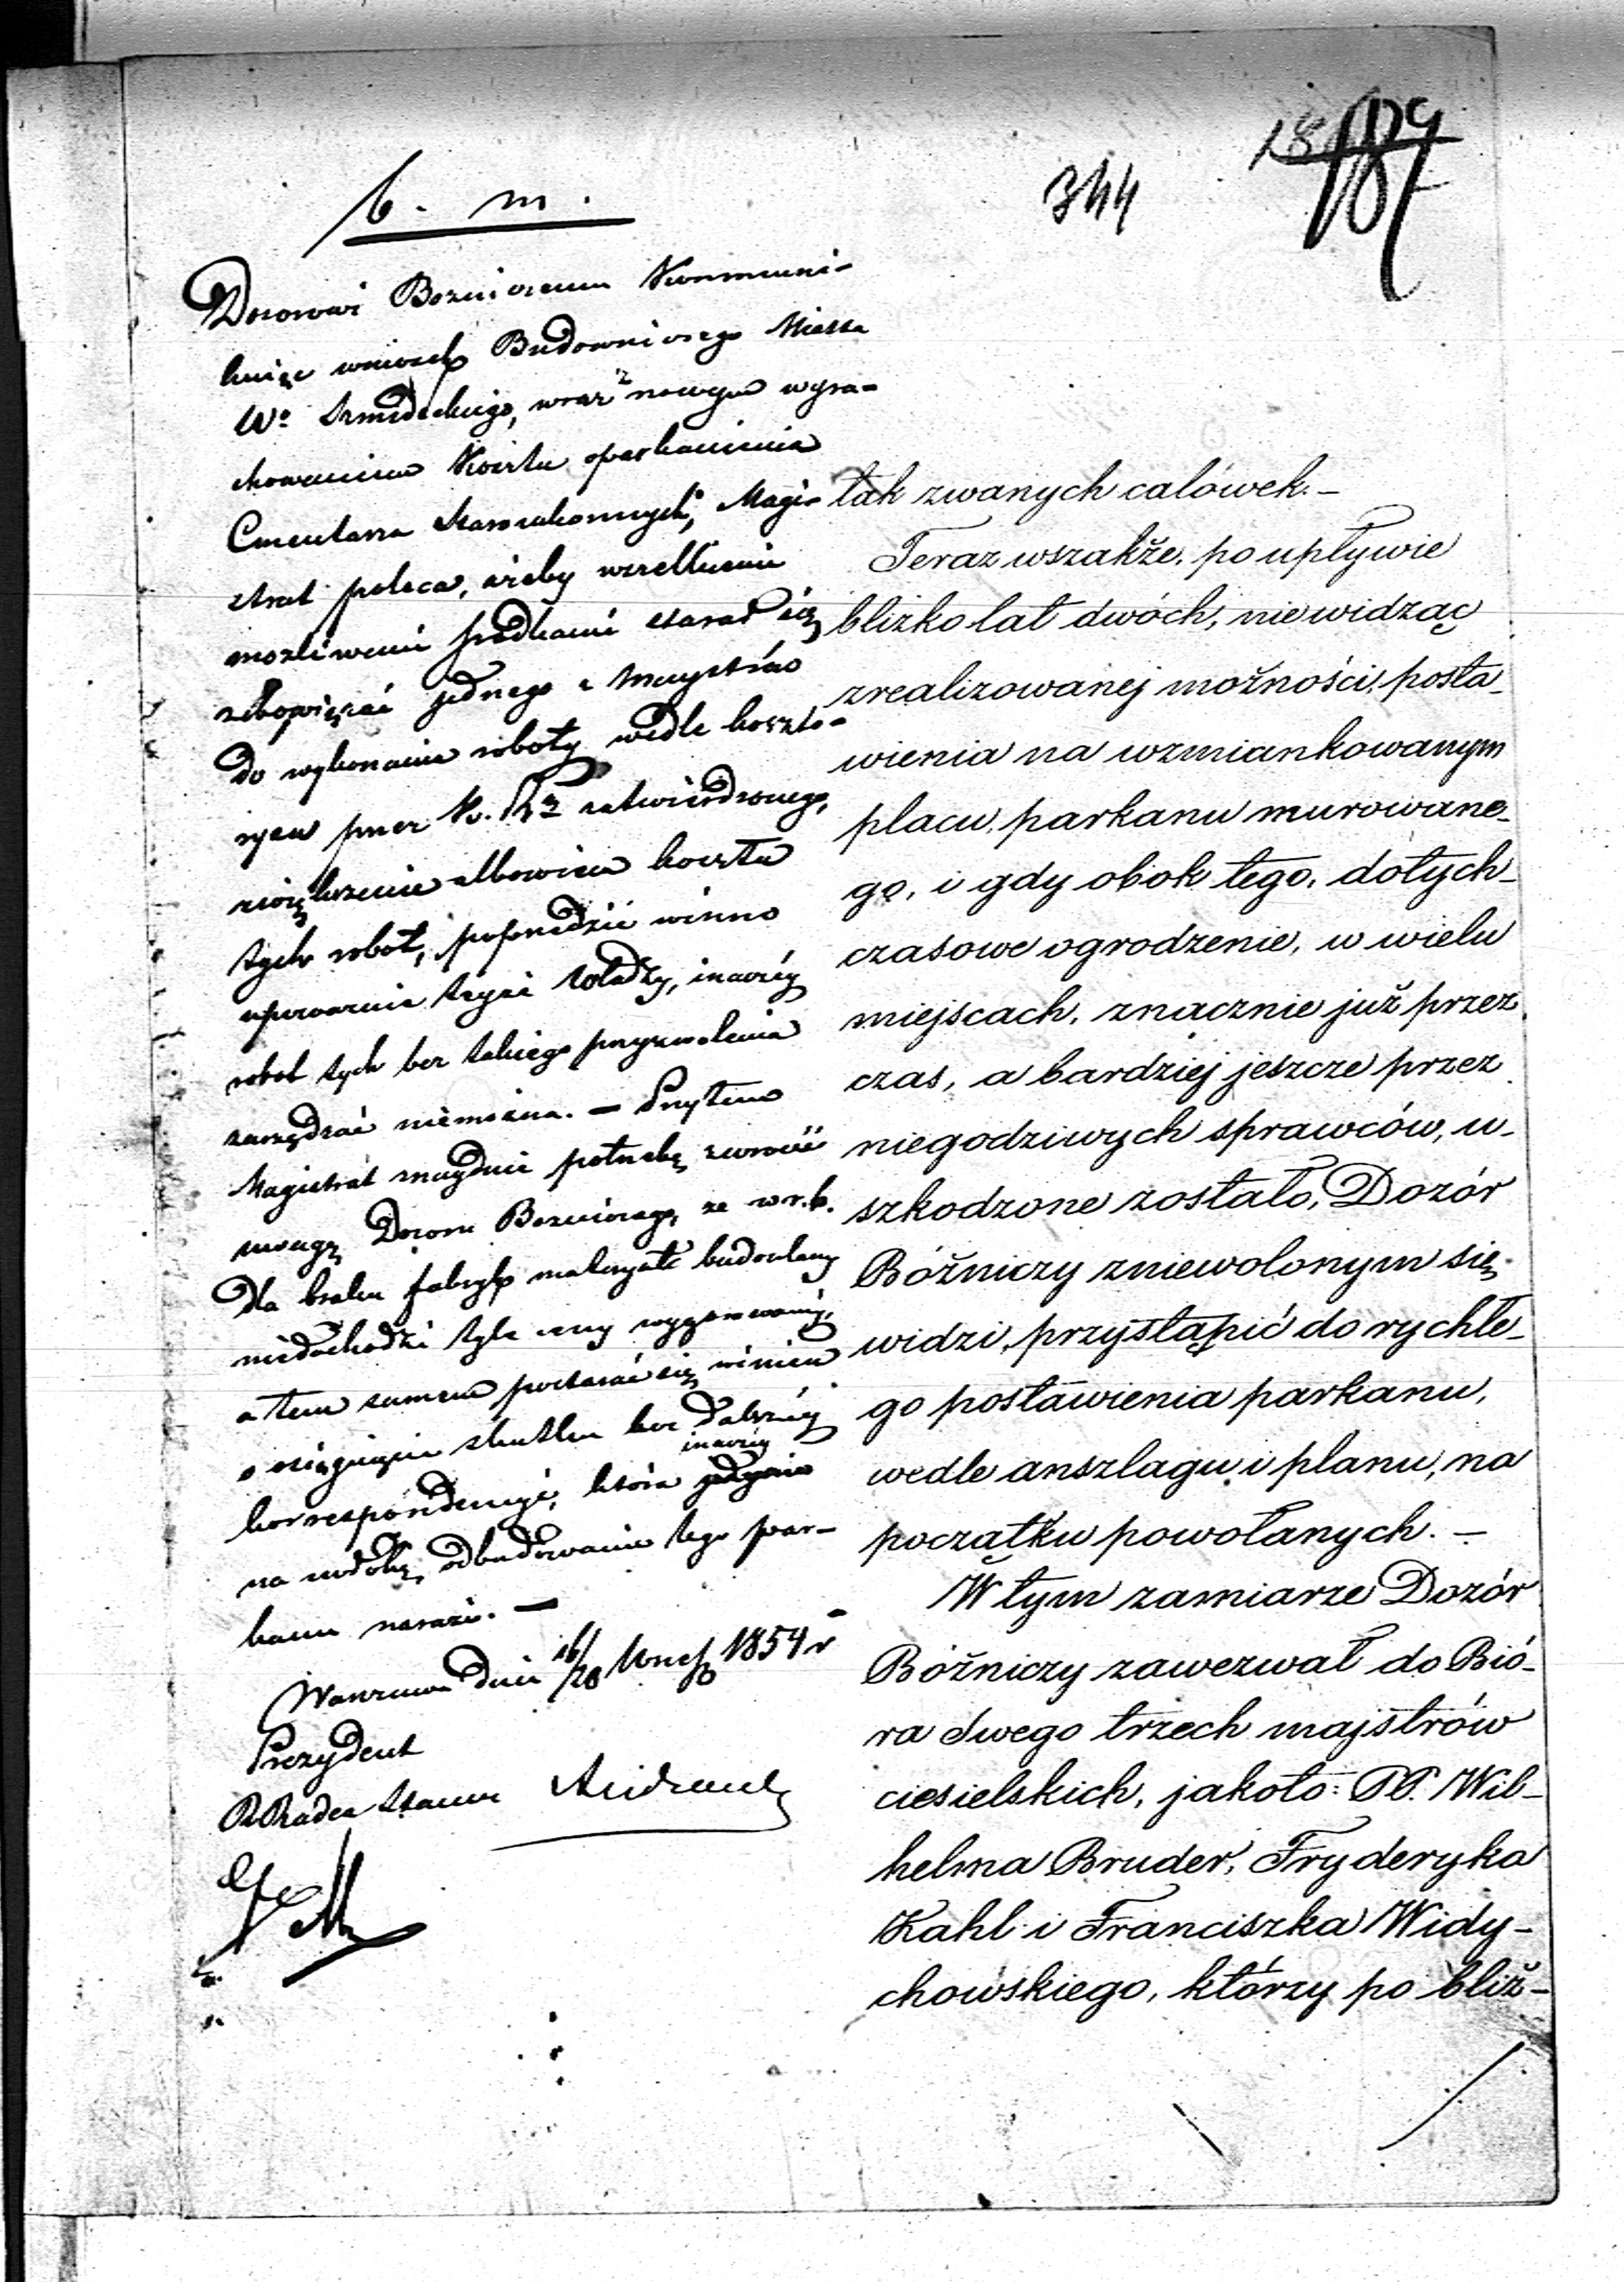 344
187
b. m.
Dozorowi Bożniczemu Kommuni-
kuiąc wniosek Budowniczego Miasta
Wo Szmideckiego, wraz z nowym wyra-
chowaniem Kosztu oparkanienia
Cmentarza Starozakonnych, Magi-
strat poleca, ażeby wszelkiemi
możliwemi środkami starał się
zobowiązać jednego z Maystrów
do wykonania roboty wedle koszto-
rysu przez K. R. zatwierdzonego,
zwiększenie albowiem kosztu
tych robót, poprzedzić winno
upoważnienie tejże Władzy, inaczéy
robót tych bez takiego przyzwolenia
zarządzać niemożna. — Przytem
Magistrat znayduie potrzebę zwrócić
uwagę Dozoru Bożniczego, że w r. b.
dla braku fabryk materyałe budowlany
niedochodzi tyle ceny wygórowanéj,
a tem samem postarać się winien
o osiągnięcie skutku bez dalszéy
korrespondencyi, która inaczéy
na zwłokę odbudowanie tego par-
kanu narazi. —
Warszawa dnia 16/28 Wrześ 1854 r
Prezydent
R Radca Stanu Andrault
tak zwanych calówek. —
Teraz wszakże, po upływie
blizko lat dwóch, niewidząc
zrealizowanej możności, posta-
wienia na wzmiankowanym
placu, parkanu murowane-
go, i gdy obok tego, dotych-
czasowe ogrodzenie, w wielu
miejscach, znacznie już przez
czas, a bardziej jeszcze przez
niegodziwych sprawców, u-
szkodzone zostało, Dozór
Bóżniczy zniewolonym się
widzi, przystąpić do rychłe-
go postawienia parkanu,
wedle anszlagu i planu, na
początku powołanych. —
W tym zamiarze Dozór
Bóżniczy zawezwał do Bió-
ra Swego trzech majstrów
ciesielskich, jakoto: PP. Wil-
helma Bruder, Fryderyka
Kahl i Franciszka Widy-
chowskiego, którzy po bliż-